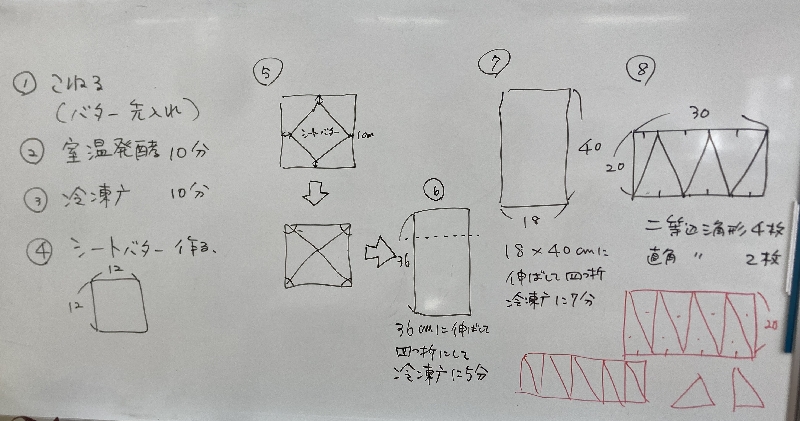 ① こねる
(バター先入れ)
② 室温発酵 10分
③ 冷凍庫 10分
④ シートバター作る、
12
12
⑤
シートバター
1cm
⑥
36
36cmに伸ばして
四つ折にして
冷凍庫に5分
⑦
40
18
18×40cmに
伸ばして四つ折
冷凍庫に7分
⑧
30
20
二等辺三角形4枚
直角 〃 2枚
20